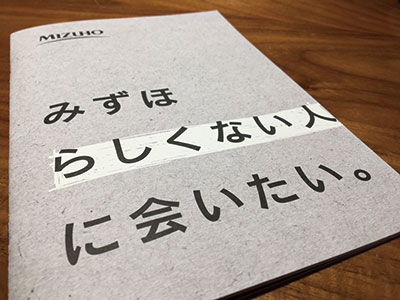 MIZUHO
みずほ
らしくない人
に会いたい。